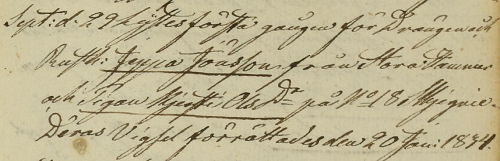 Sept: d. 22 lystes första gången för Drängen och
Rustth: Jeppa Jönsson från Stora Hammar
och Pigan Kjersti Ols Dr på No 18 i
Deras Vigsel förrättades den 20 Jan: 1834.